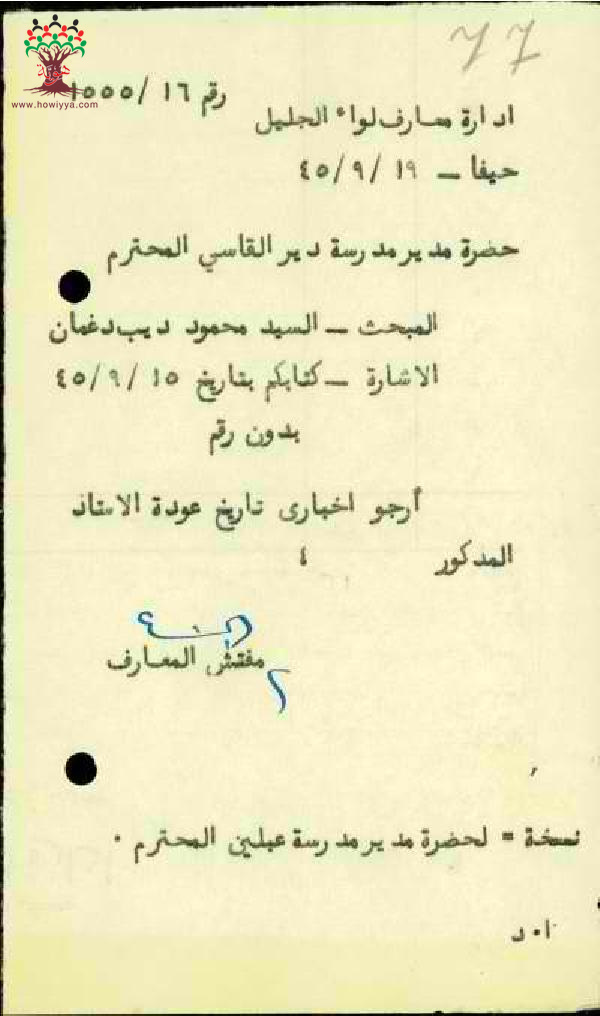 77
www.howiyya.com
رقم ١٦ /١٥٥٥
ادارة معارف لواء الجليل
حيفا – ١٩ /٩ /٤٥
حضرة مدير مدرسة دير القاسي المحترم
المبحث – السيد محمود ديب دغمان
الاشارة – كتابكم بتاريخ ١٥ /٩ /٤٥
بدون رقم
أرجو اخبارى تاريخ عودة الاستاذ
المدكور ٤
مفتش المعارف
نسخة = لحضرة مدير مدرسة عبلين المحترم ٠
ا٠ د